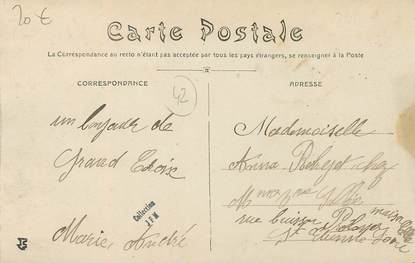 20 €
Carte Postale
La Correspondance au recto n'étant pas acceptée par tous les pays étrangers, se renseigner à la Poste
CORRESPONDANCE
42
ADRESSE
un bonjour de
Grand Croix
Marie André
Collection
J F M
Mademoiselle
Anna chez
rue Buisson
St Etienne Loire